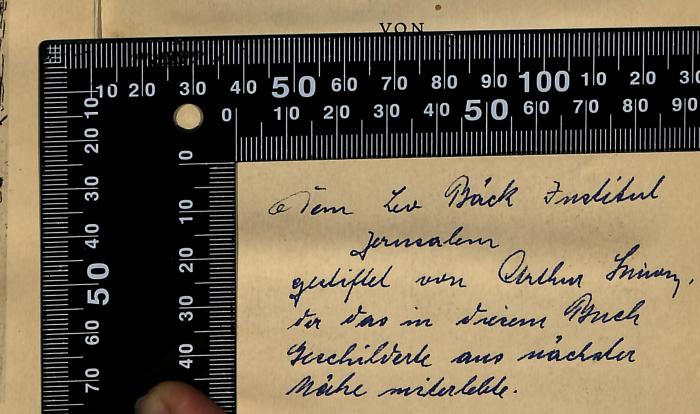 VON
10 20 30 40 50 60 70 80 90 100 10 20 30
0 10 20 30 40 50 60 70 80 90
10 20 30 40 50 60 70
0 10 20 30 40
Dem Leo Bäck Institut
Jerusalem
gestiftet von Arthur
der das in diesem Buch
Geschilderte aus nächster
Nähe miterlebte.